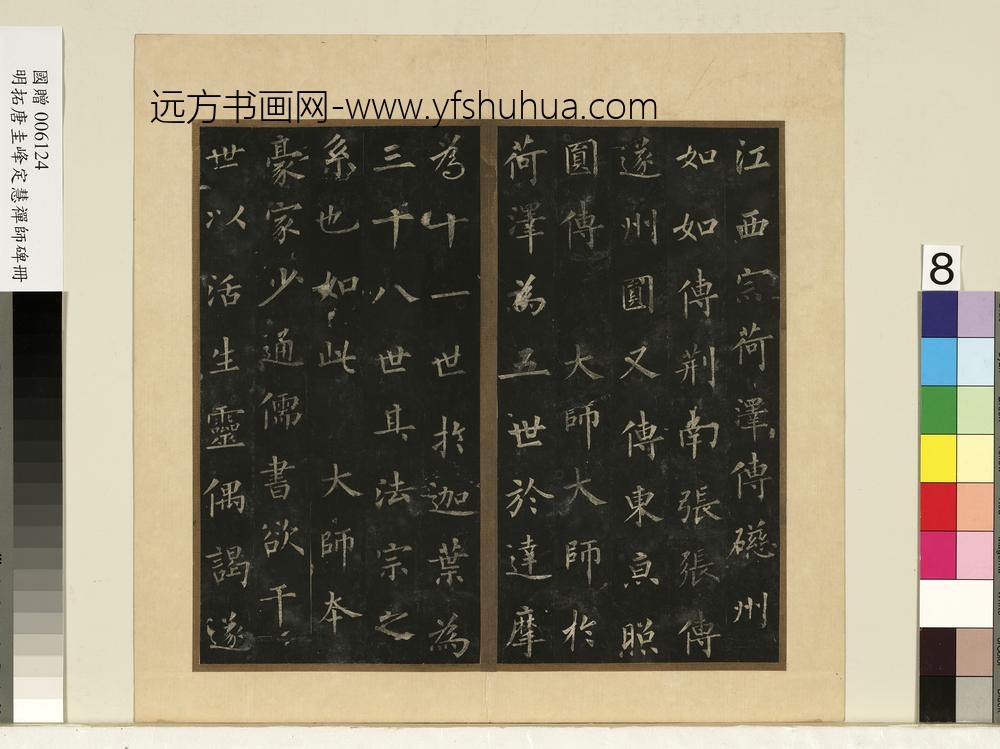 远方书画网-www.yfshuhua.com
國贈 006124
明拓唐圭峰定慧禪師碑冊
8
江西宗荷澤傳磁州
如如傳荆南張張傳
遂州圓又傳東京照
圓傳大師大師於
荷澤為五世於達摩
為十一世於迦葉為
三十八世其法宗之
系也如此大師本
豪家少通儒書欲干
世以活生靈偶謁遂